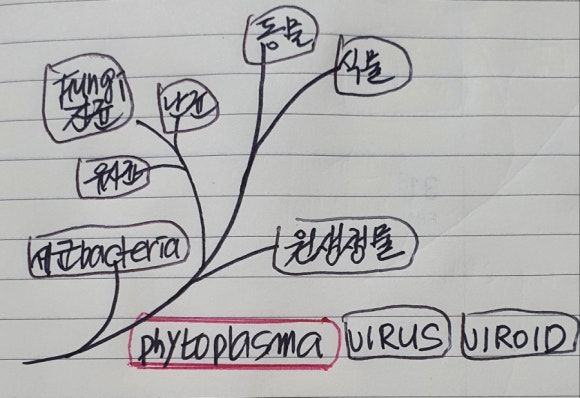 동물
식물
Fungi
진균
난균
유사균
세균bacteria
원생생물
phytoplasma
VIRUS
VIROID